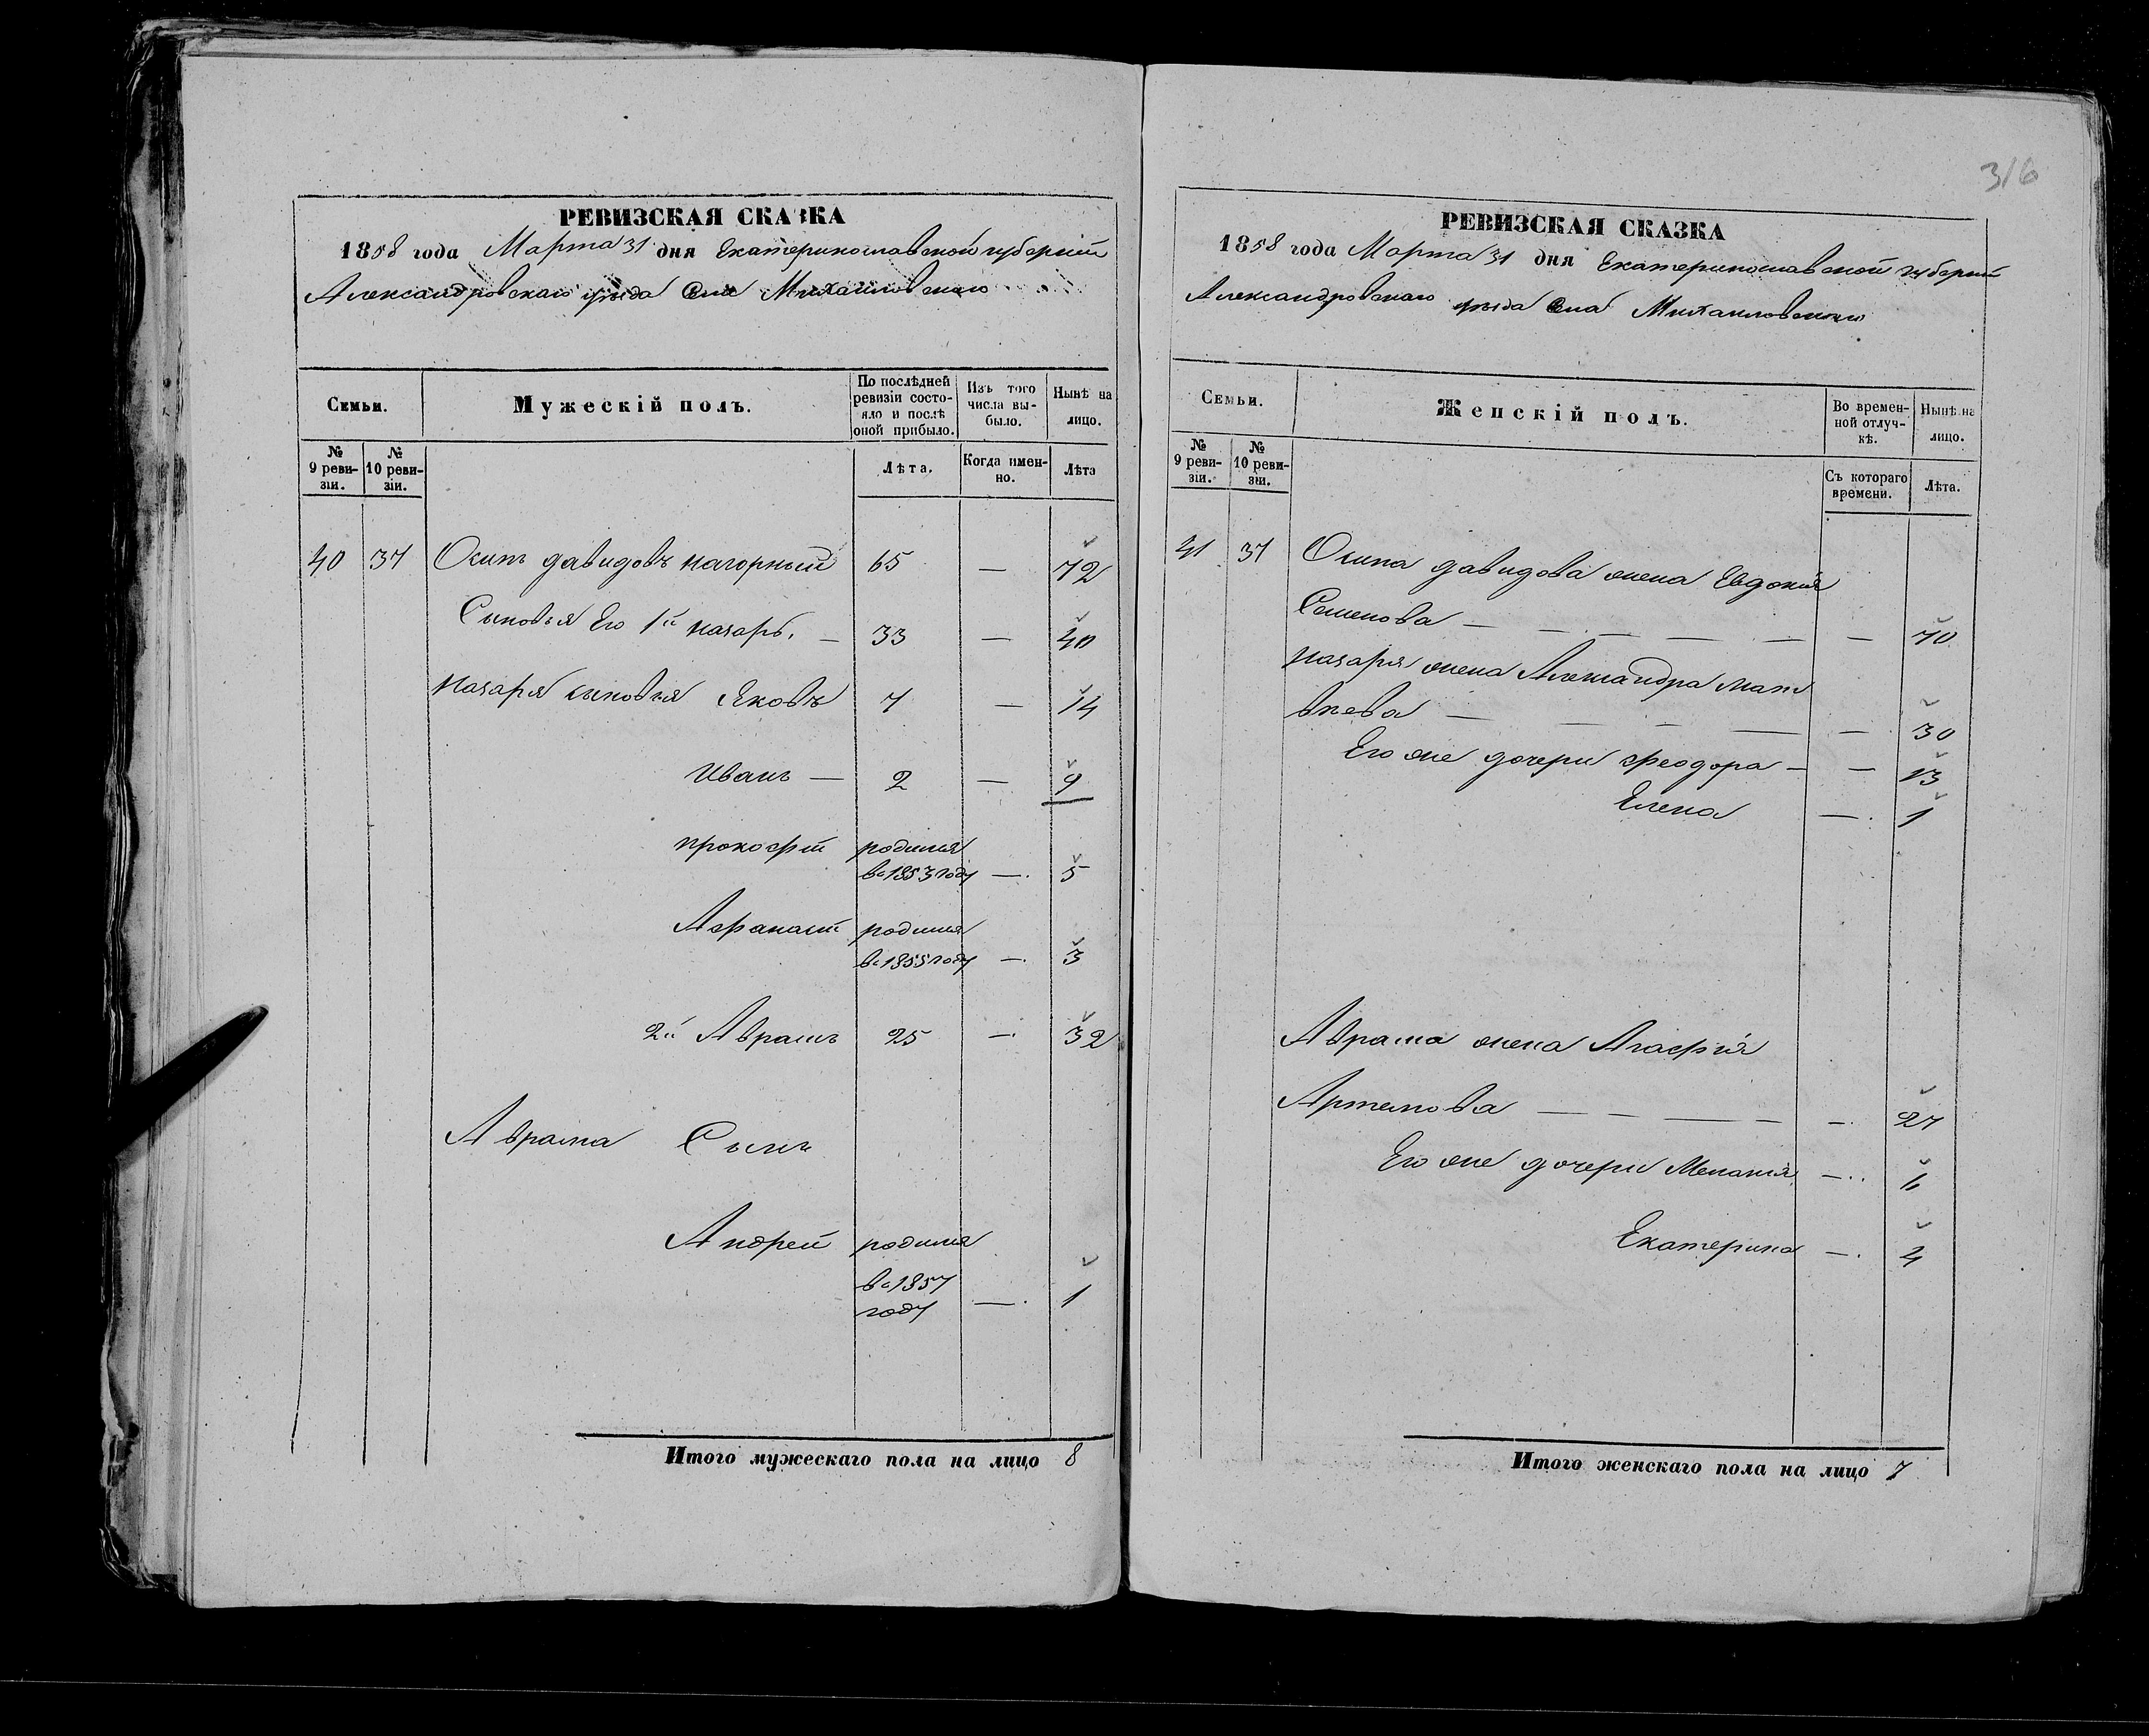 316
РЕВИЗСКАЯ СКАЗКА
1858 года Марта 31 дня Екатеринославской губерніи
Александровскаго уѣзда Села Михайловскаго
Семьи.
Мужескій полъ.
По послѣдней ревизіи состояло и послѣ оной прибыло.
Изъ того числа выбыло.
Нынѣ на лицо.
№ 9 ревизіи.
№ 10 ревизіи.
Лѣта.
Когда именно.
Лѣта
40 37 Осипъ давидовъ нагорный 65 — 72
Сыновья Его 1й назаръ. — 33 — 40
назаря сыновья Яковъ 7 — 14
Иванъ — 2 — 9
прокофій родился
въ 1853 году — 5
Афанасій родился
въ 1855 году — 3
2й Аврамъ 25 — 32
Аврама Сынъ
Андрей родился
въ 1857
году — 1
Итого мужескаго пола на лицо 8
РЕВИЗСКАЯ СКАЗКА
1858 года Марта 31 дня Екатеринославской губерніи
Александровскаго уѣзда Села Михайловскаго
Семьи.
Женскій полъ.
Во временной отлучкѣ.
Нынѣ на лицо.
№ 9 ревизіи.
№ 10 ревизіи.
Съ котораго времени.
Лѣта.
37 Осипа давидова жена Евдокия
Семенова — — — — — — 70
назаря жена Александра мат
вѣева — — — — — 30
Его же дочери феодора — — 13
Елена — 1
Аврама жена Агафія
Артемова — — — — — 27
Его же дочери Меланія — 6
Екатерина — 4
Итого женскаго пола на лицо 7